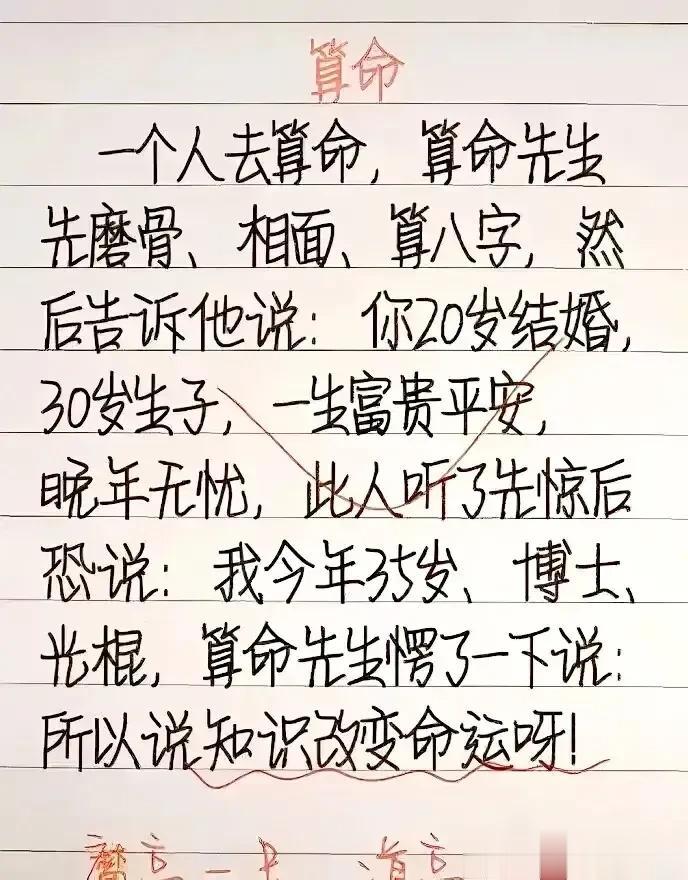 算命
一个人去算命，算命先生
先磨骨、相面、算八字，然
后告诉他说：你20岁结婚，
30岁生子，一生富贵平安，
晚年无忧，此人听了先惊后
恐说：我今年35岁、博士、
光棍，算命先生愣了一下说：
所以说知识改变命运呀！